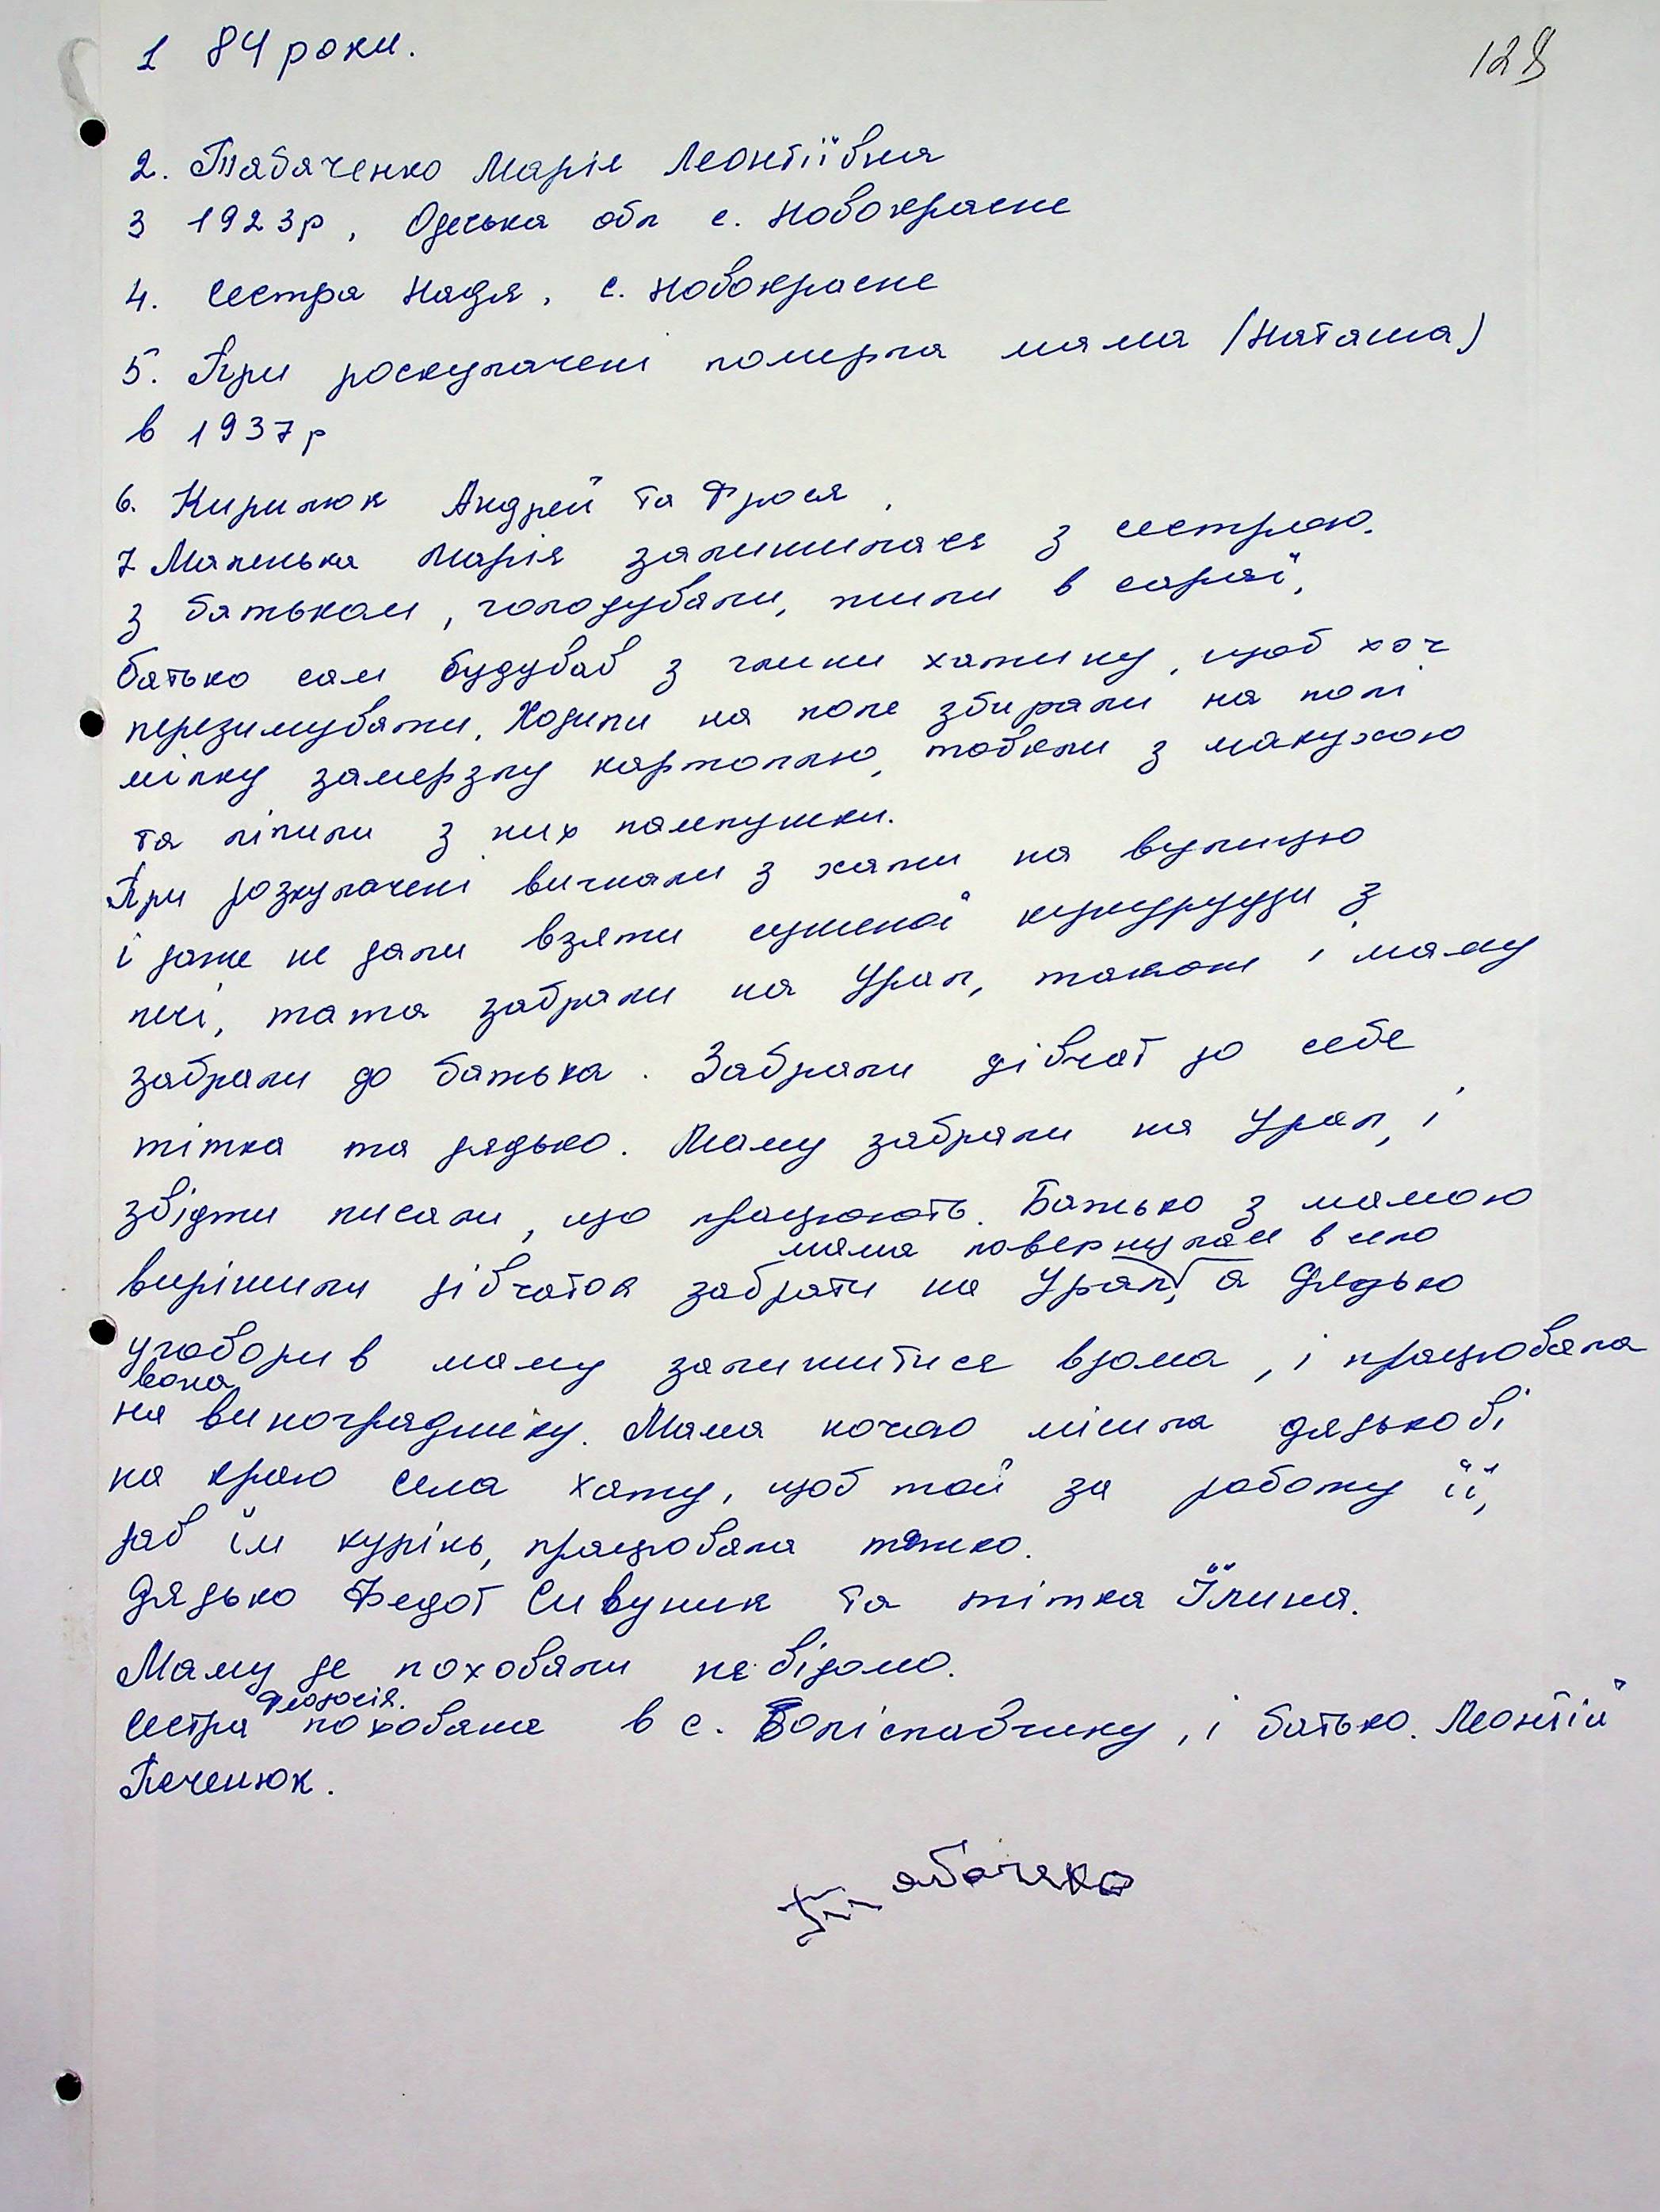 128
1 84 роки.
2. Табаченко Марія Леонтіївна
3 1923р, Одеська обл с. Новокрасне
4. Сестра Надя, с. Новокрасне
5. При роскулачені померла мама (Наташа)
в 1937р
6. Кирилюк Андрей та Фрося,
7 Маленька Марія залишилася з сестрою.
з батьком, голодували, жили в сараї,
батько сам будував з глини хатину, щоб хоч
перезимувати. Ходили на поле збирали на полі
мілку замерзлу картоплю, товкли з макухою
та ліпили з них пампушки.
При розкулачені вигнали з хати на вулицю
і даже не дали взяти сушеної кукурудзи з
печі, тата забрали на Урал, також і маму
забрали до батька. Забрали дівчат до себе
тітка та дядько. Маму забрали на Урал, і
звідти писали, що працюють. Батько з мамою
мама повернулась в село
вирішили дівчаток забрати на Урал, а дядько
уговорив маму залишитися вдома, і працювала
вона
на винограднику. Мама ночью місила дядькові
на краю села хату, щоб той за роботу її,
дав їм курінь, працювала тяжко.
Дядько Федот Сивуник та тітка Їлина.
Маму де поховали не відомо.
Сестра похована в с. Боліславчику, і батько. Леонтій
Печенюк.